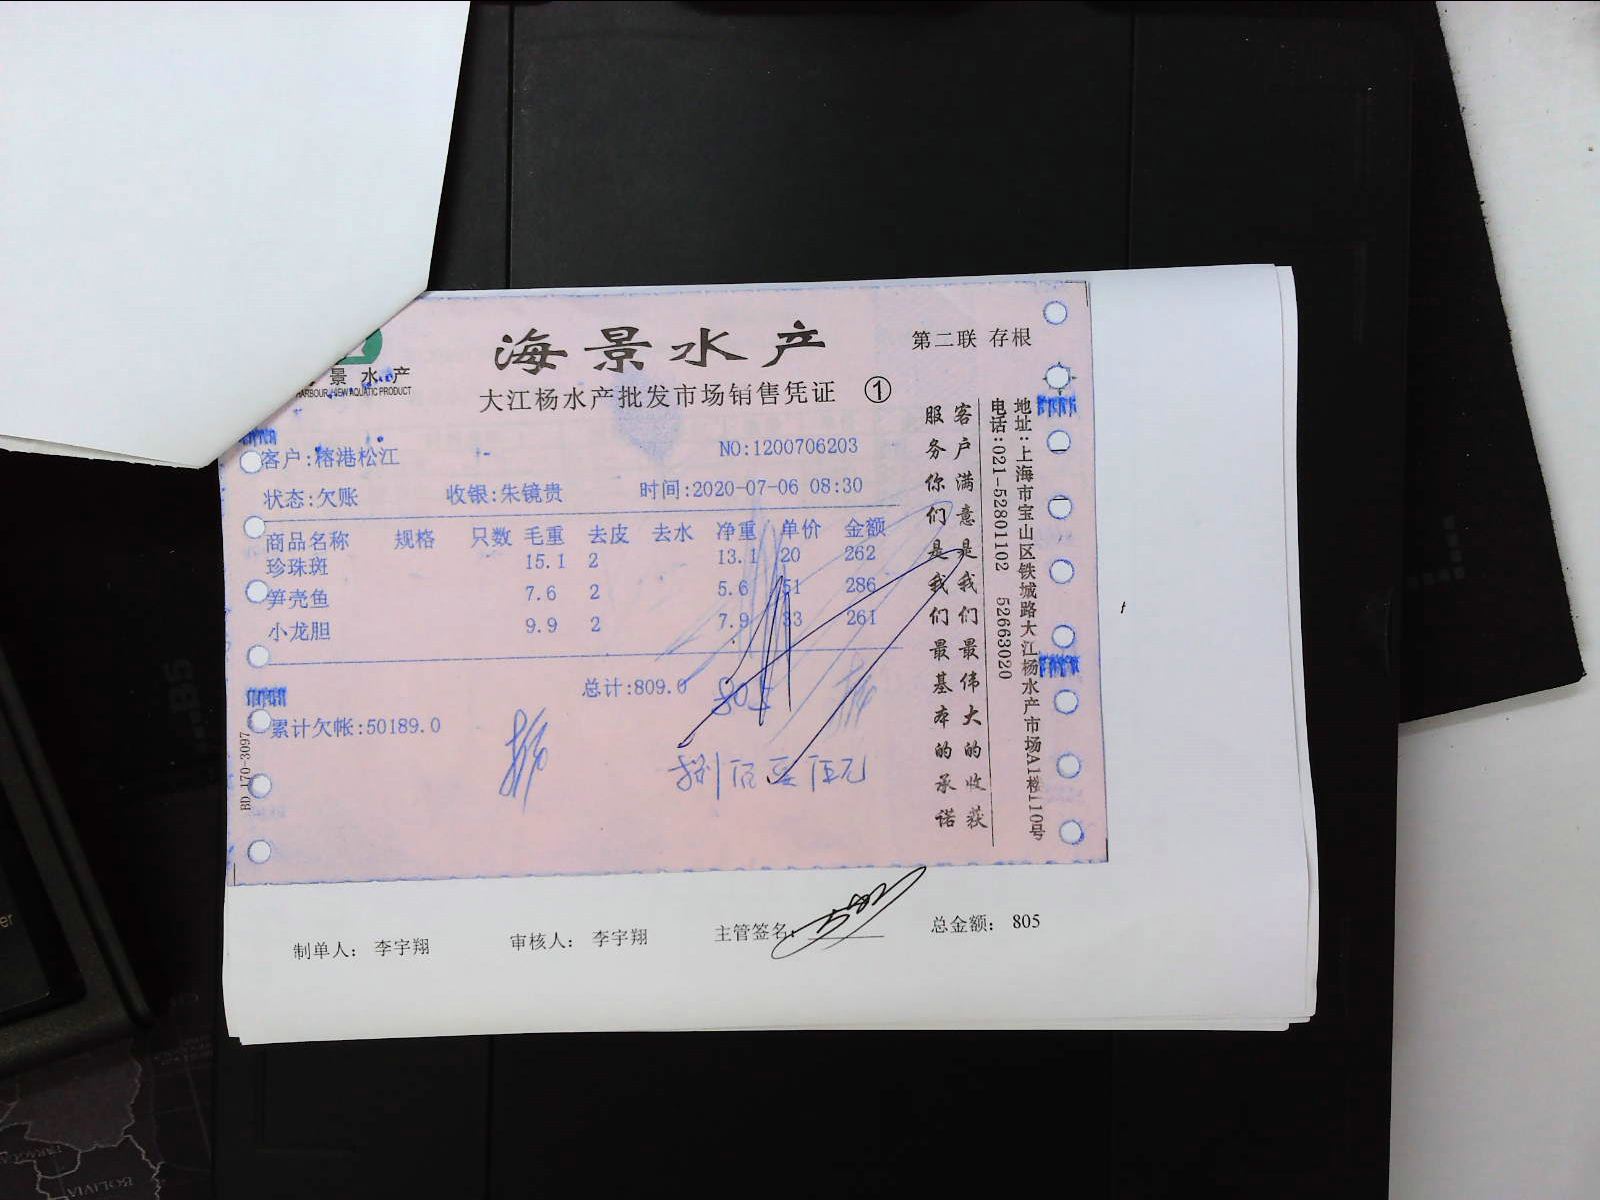 景水产
HARBOUR VIEW AQUATIC PRODUCT
海景水产
大江杨水产批发市场销售凭证 ①
第二联 存根
客户:榕港松江 NO:1200706203
状态:欠账 收银:朱镜贵 时间:2020-07-06 08:30
商品名称 规格 只数 毛重 去皮 去水 净重 单价 金额
珍珠斑 15.1 2 13.1 20 262
笋壳鱼 7.6 2 5.6 51 286
小龙胆 9.9 2 7.9 33 261
总计:809.0 805
累计欠帐:50189.0
捌佰零伍元
客户满意是我们最伟大的收获
服务你们是我们最基本的承诺
地址:上海市宝山区铁城路大江杨水产市场A1楼110号
电话:021-52801102 52663020
BD 170-3097
制单人: 李宇翔 审核人: 李宇翔 主管签名: 总金额: 805